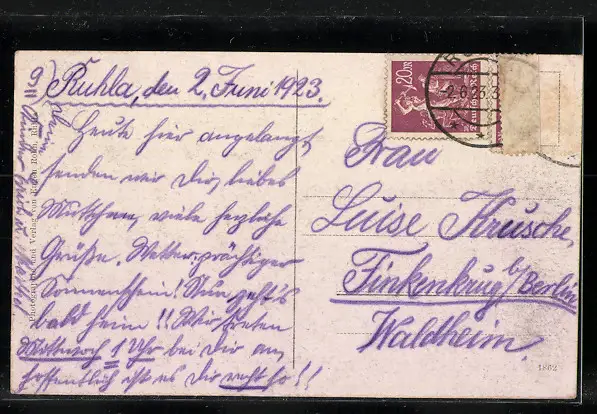 9) Ruhla, den 2. Juni 1923.
Heute hier angelangt
senden wir Dir, liebes
Muttchen, viele herzliche
Grüße. Wetter: prächtiger
Sonnenschein! Nun geht's
bald heim!! Wir treten
Mittwoch 1 Uhr bei Dir an,
hoffentlich ist es Dir recht so!!
Frau
Luise Krusche,
Finkenkrug b/Berlin
Waldheim.
20M
Deutsches Reich
-2.6.23.3
Photographie und Verlag von
1862